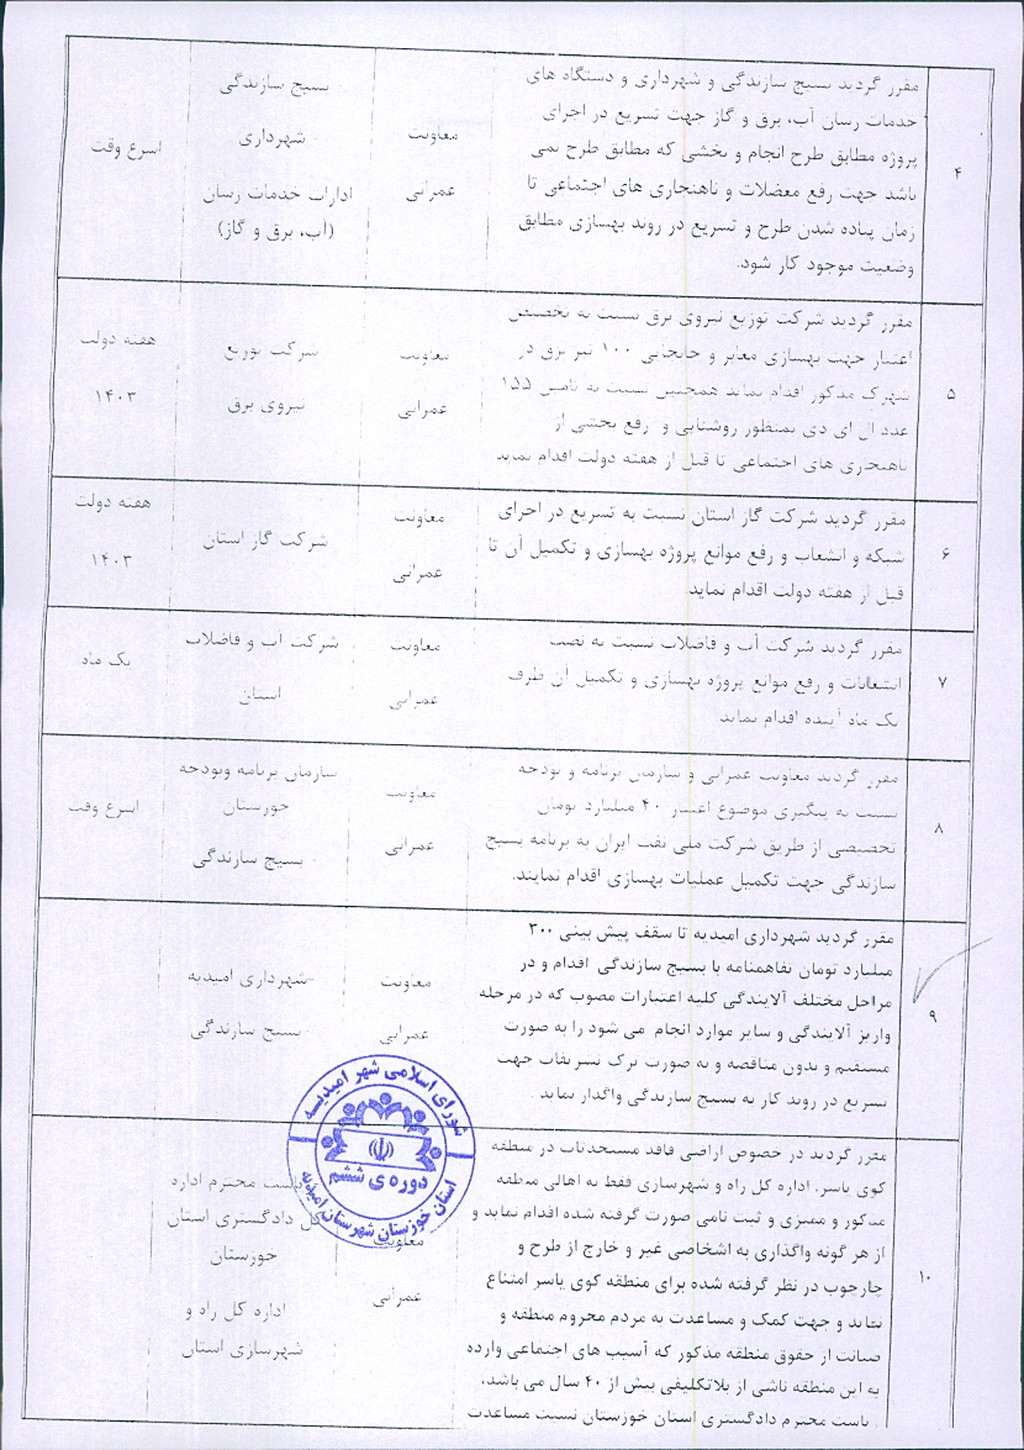 ۴
مقرر گردید بسیج سازندگی و شهرداری و دستگاه های
خدمات رسان آب، برق و گاز جهت تسریع در اجرای
پروژه مطابق طرح انجام و بخشی که مطابق طرح نمی
باشد جهت رفع معضلات و ناهنجاری های اجتماعی تا
زمان پیاده شدن طرح و تسریع در روند بهسازی مطابق
وضعیت موجود کار شود.
معاونت
عمرانی
بسیج سازندگی
شهرداری
ادارات خدمات رسان
(آب، برق و گاز)
اسرع وقت
۵
مقرر گردید شرکت توزیع نیروی برق نسبت به تخصیص
اعتبار جهت بهسازی معابر و جابجایی ۱۰۰ تیر برق در
شهرک مذکور اقدام نماید همچنین نسبت به تامین ۱۵۵
عدد ال ای دی بمنظور روشنایی و رفع بخشی از
ناهنجاری های اجتماعی تا قبل از هفته دولت اقدام نماید
معاونت
عمرانی
شرکت توزیع
نیروی برق
هفته دولت
۱۴۰۳
۶
مقرر گردید شرکت گاز استان نسبت به تسریع در اجرای
شبکه و انشعاب و رفع موانع پروژه بهسازی و تکمیل آن تا
قبل از هفته دولت اقدام نماید
معاونت
عمرانی
شرکت گاز استان
هفته دولت
۱۴۰۳
۷
مقرر گردید شرکت آب و فاضلاب نسبت به نصب
انشعابات و رفع موانع پروژه بهسازی و تکمیل آن ظرف
یک ماه آینده اقدام نماید
معاونت
عمرانی
شرکت آب و فاضلاب
استان
یک ماه
۸
مقرر گردید معاونت عمرانی و سازمان برنامه و بودجه
نسبت به پیگیری موضوع اعتبار ۴۰ میلیارد تومان
تخصیصی از طریق شرکت ملی نفت ایران به برنامه بسیج
سازندگی جهت تکمیل عملیات بهسازی اقدام نمایند.
معاونت
عمرانی
سازمان برنامه وبودجه
خوزستان
بسیج سازندگی
اسرع وقت
۹
مقرر گردید شهرداری امیدیه تا سقف پیش بینی ۳۰۰
میلیارد تومان تفاهمنامه با بسیج سازندگی اقدام و در
مراحل مختلف آلایندگی کلیه اعتبارات مصوب که در مرحله
واریز آلایندگی و سایر موارد انجام می شود را به صورت
مستقیم و بدون مناقصه و به صورت ترک تشریفات جهت
تسریع در روند کار به بسیج سازندگی واگذار نماید .
معاونت
عمرانی
-شهرداری امیدیه
-بسیج سازندگی
شورای اسلامی شهر امیدیه
دوره ی ششم
استان خوزستان شهرستان امیدیه
۱۰
مقرر گردید در خصوص اراضی فاقد مستحدثات در منطقه
کوی یاسر، اداره کل راه و شهرسازی فقط به اهالی منطقه
مذکور و ممیزی و ثبت نامی صورت گرفته شده اقدام نماید و
از هر گونه واگذاری به اشخاصی غیر و خارج از طرح و
چارچوب در نظر گرفته شده برای منطقه کوی یاسر امتناع
نماید و جهت کمک و مساعدت به مردم محروم منطقه و
صیانت از حقوق منطقه مذکور که آسیب های اجتماعی وارده
به این منطقه ناشی از بلاتکلیفی بیش از ۴۰ سال می باشد،
ریاست محترم دادگستری استان خوزستان نسبت مساعدت
معاونت
عمرانی
ریاست محترم اداره
کل دادگستری استان
خوزستان
اداره کل راه و
شهرسازی استان